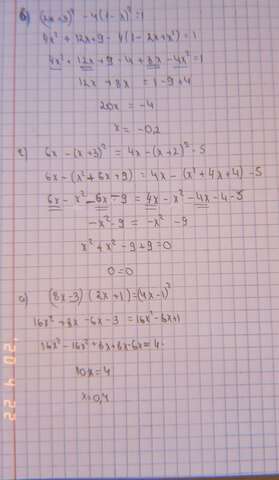 б) (2x+3)² - 4(1-x)² = 1
4x² + 12x + 9 - 4(1 - 2x + x²) = 1
4x² + 12x + 9 - 4 + 8x - 4x² = 1
12x + 8x = 1 - 9 + 4
20x = -4
x = -0,2
в) 6x - (x+3)² = 4x - (x+2)² - 5
6x - (x² + 6x + 9) = 4x - (x² + 4x + 4) - 5
6x - x² - 6x - 9 = 4x - x² - 4x - 4 - 5
-x² - 9 = -x² - 9
x² + x² - 9 + 9 = 0
0 = 0
а) (8x-3)(2x+1) = (4x-1)²
16x² + 8x - 6x - 3 = 16x² - 8x + 1
16x² - 16x² + 8x + 8x - 6x = 4
10x = 4
x = 0,4
'20 4 22